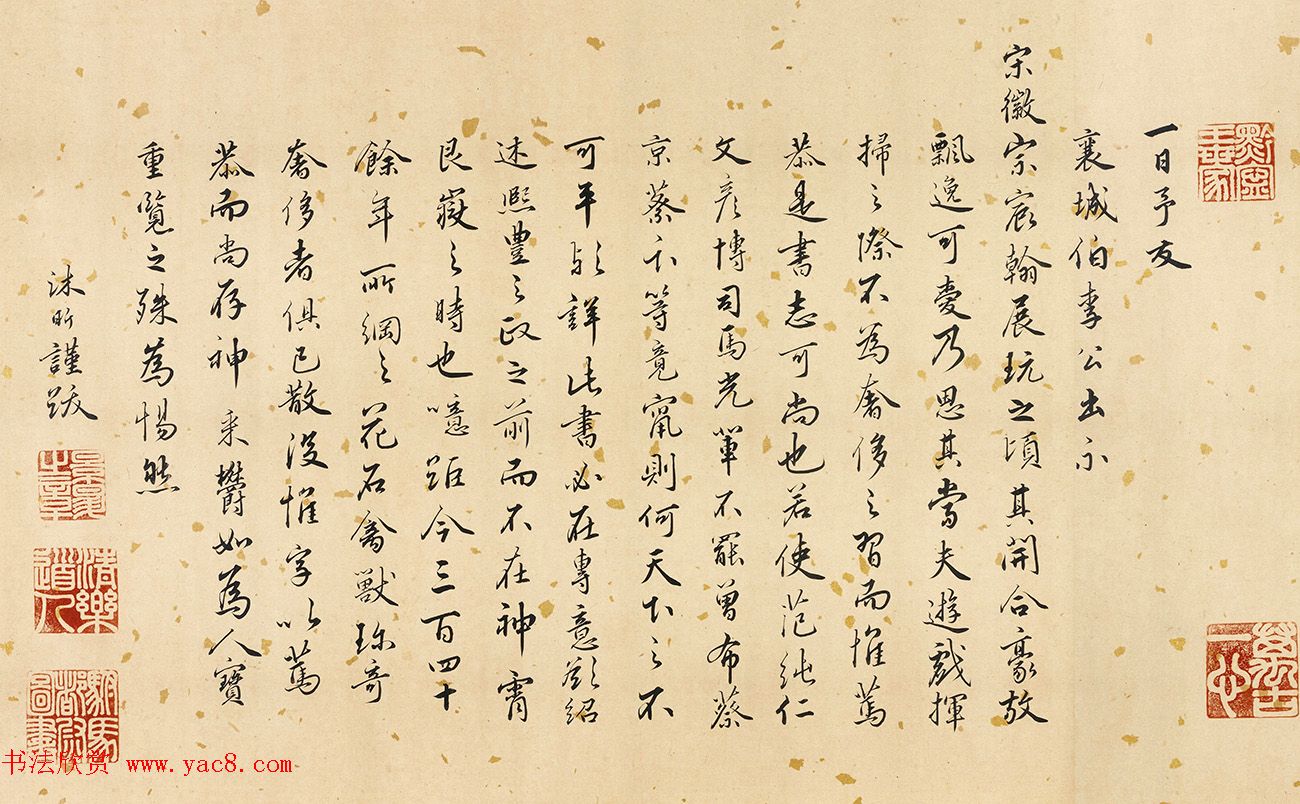 一日予友
襄城伯李公出示
宋徽宗宸翰展玩之頃其開合豪放
飄逸可愛乃思其當夫遊戲揮
掃之際不為奢侈之習而惟篤
恭是書志可尚也若使范純仁
文彥博司馬光輩不罷曾布蔡
京蔡卞等竟竄則何天下之不
可平歟詳此書必在專意欲紹
述熙豐之政之前而不在神霄
艮嶽之時也噫距今三百四十
餘年所綱之花石禽獸珍奇
奢侈者俱已散没惟字以篤
恭而尚存神采欝如為人寶
重覽之殊為惕然
沐昕謹跋
萬古一心
樂道人
駙馬都尉圖書
书法欣赏 www.yac8.com